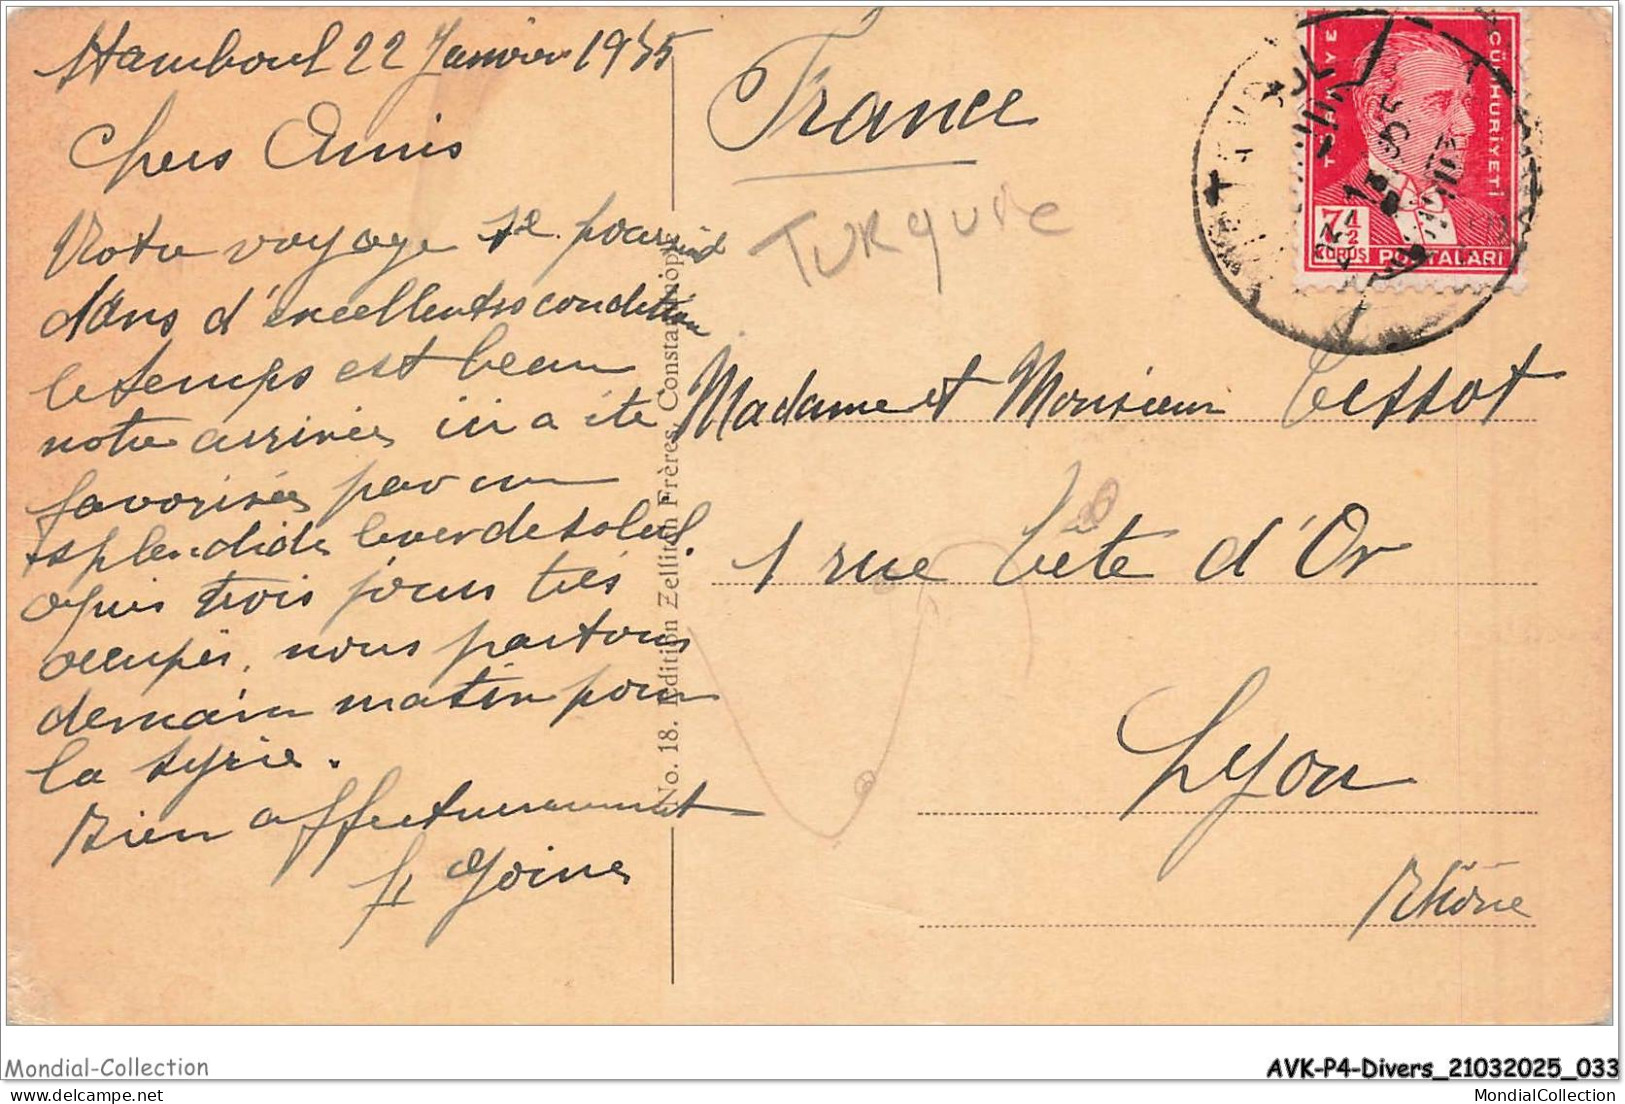 Stamboul 22 Janvier 1935
Chers Amis
Notre voyage se poursuit
dans d'excellentes condition
le temps est beau
notre arrivée ici a été
favorisée par un
splendide lever de soleil.
depuis trois jours très
occupés. nous partons
demain matin pour
la Syrie.
Bien affectueusement
No. 18. Edition Zellitch Frères, Constantinople
France
TURQUIE
TÜRKİYE CÜMHURİYETİ
7½
KURUŞ POSTALARI
Madame et Monsieur Tessot
1 rue Tête d'Or
Lyon
Rhône
Mondial-Collection
AVK-P4-Divers_21032025_033
delcampe.net
MondialCollection